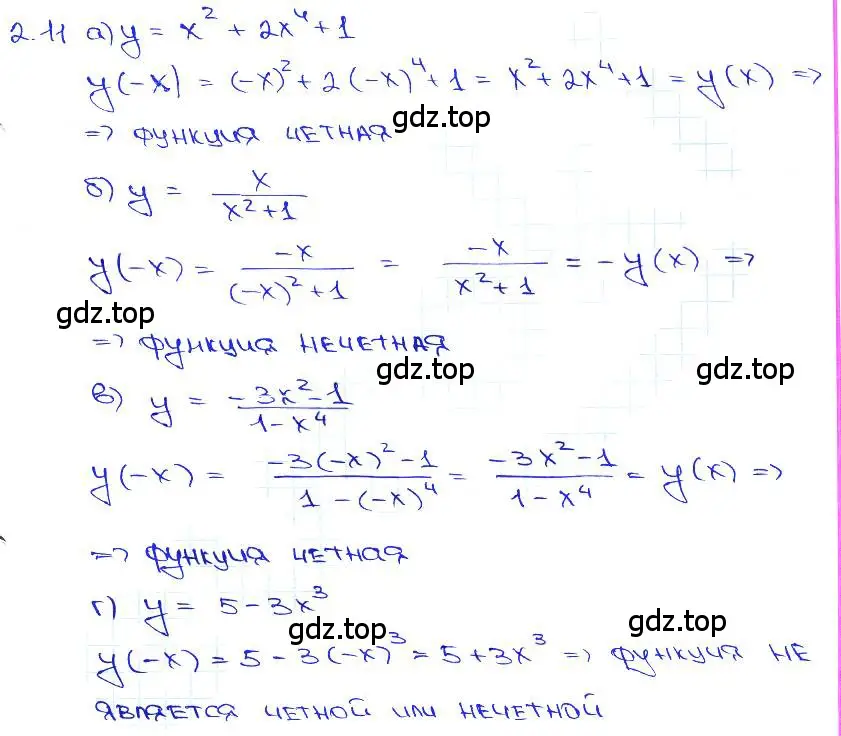 2.11 а) y = x² + 2x⁴ + 1
y(-x) = (-x)² + 2(-x)⁴ + 1 = x² + 2x⁴ + 1 = y(x) =>
=> функция четная
gdz.top
б) y = x/(x²+1)
y(-x) = -x/((-x)²+1) = -x/(x²+1) = -y(x) =>
gdz.top
=> функция нечетная
gdz.top gdz.top
в) y = (-3x²-1)/(1-x⁴)
y(-x) = (-3(-x)²-1)/(1-(-x)⁴) = (-3x²-1)/(1-x⁴) = y(x) =>
=> функция четная
г) y = 5 - 3x³
gdz.top gdz.top
y(-x) = 5 - 3(-x)³ = 5 + 3x³ => функция не
является четной или нечетной